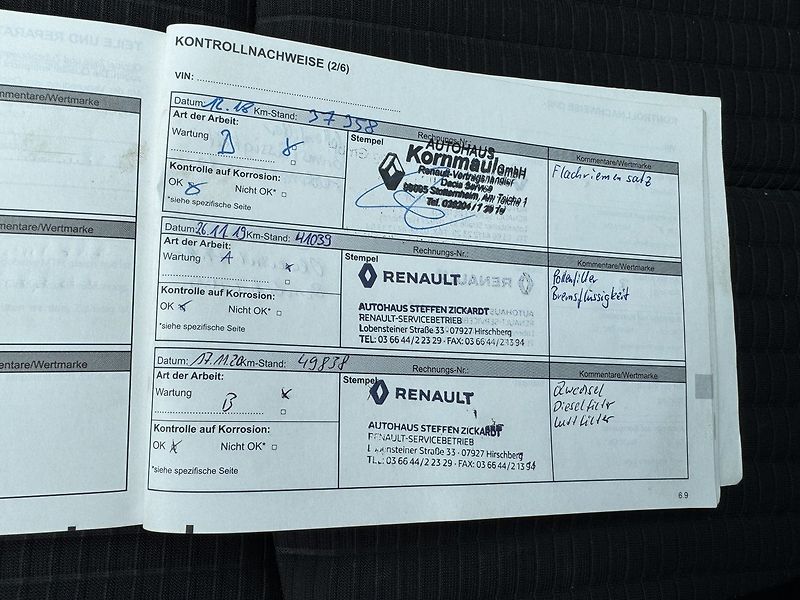 KONTROLLNACHWEISE (2/6)
VIN:
Datum: 12.18 Km-Stand: 37 358
Rechnungs-Nr.:
Kommentare/Wertmarke
Art der Arbeit:
Wartung
Stempel
AUTOHAUS
Kornmaul GmbH
Renault-Vertragshändler
Dacia Service
Flachriemensatz
Kontrolle auf Korrosion:
OK Nicht OK*
*siehe spezifische Seite
Datum: 26.11.19 Km-Stand: 41039
Rechnungs-Nr.:
Kommentare/Wertmarke
Art der Arbeit:
Wartung A x
Stempel
RENAULT
AUTOHAUS STEFFEN ZICKARDT
RENAULT-SERVICEBETRIEB
Lobensteiner Straße 33 · 07927 Hirschberg
TEL: 03 66 44/2 23 29 · FAX: 03 66 44/2 13 94
Pollenfilter
Bremsflüssigkeit
Kontrolle auf Korrosion:
OK x Nicht OK*
*siehe spezifische Seite
Datum: 17.11.20 Km-Stand: 49838
Rechnungs-Nr.:
Kommentare/Wertmarke
Art der Arbeit:
Wartung B x
Stempel
RENAULT
AUTOHAUS STEFFEN ZICKARDT
RENAULT-SERVICEBETRIEB
Lobensteiner Straße 33 · 07927 Hirschberg
TEL: 03 66 44/2 23 29 · FAX: 03 66 44/2 13 94
Ölwechsel
Dieselfilter
Luftfilter
Kontrolle auf Korrosion:
OK x Nicht OK*
*siehe spezifische Seite
6.9
mentare/Wertmarke
mentare/Wertmarke
mentare/Wertmarke